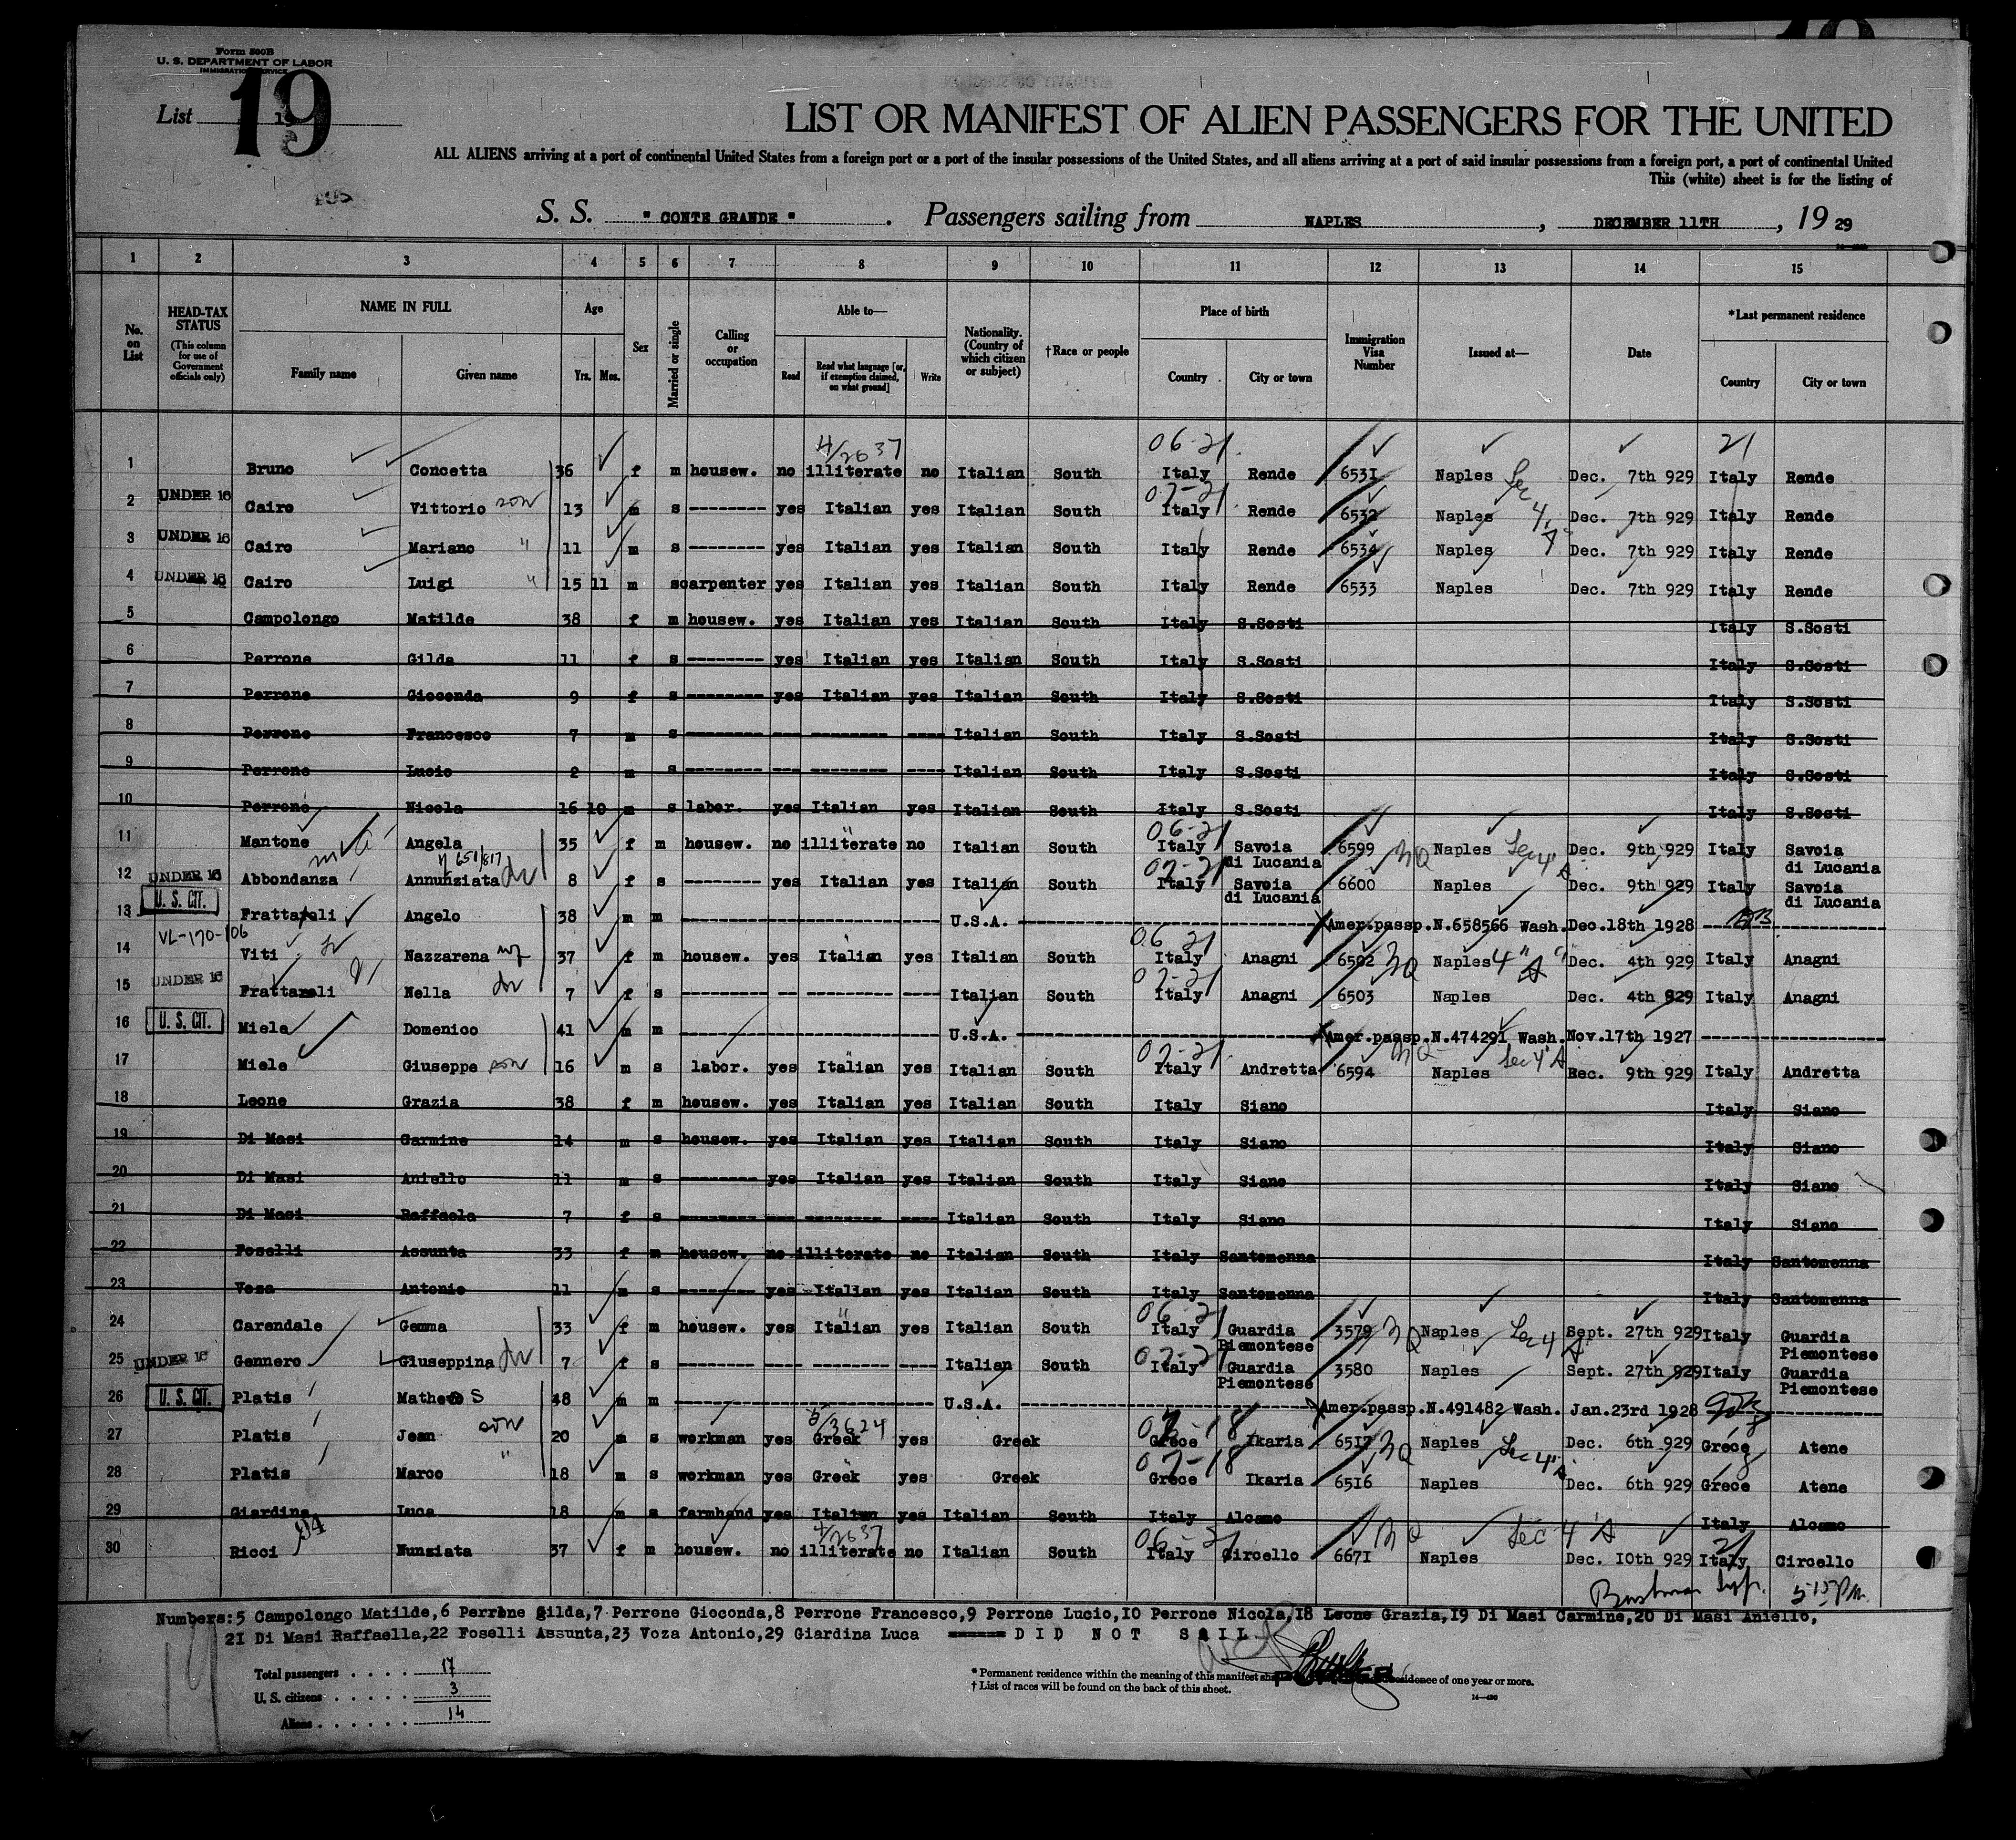 Form 500B
U. S. DEPARTMENT OF LABOR
IMMIGRATION SERVICE
List 19
LIST OR MANIFEST OF ALIEN PASSENGERS FOR THE UNITED
ALL ALIENS arriving at a port of continental United States from a foreign port or a port of the insular possessions of the United States, and all aliens arriving at a port of said insular possessions from a foreign port, a port of continental United
This (white) sheet is for the listing of
S. S. " CONTE GRANDE " . Passengers sailing from NAPLES , DECEMBER 11TH , 19 29
1 2 3 4 5 6 7 8 9 10 11 12 13 14 15
No. on List
HEAD-TAX STATUS (This column for use of Government officials only)
NAME IN FULL Family name Given name
Age Yrs. Mos.
Sex
Married or single
Calling or occupation
Able to— Read Read what language [or, if exemption claimed, on what ground] Write
Nationality. (Country of which citizen or subject)
†Race or people
Place of birth Country City or town
Immigration Visa Number
Issued at—
Date
*Last permanent residence Country City or town
4/2637 06-21 21
1 Bruno Concetta 36 f m housew. no illiterate no Italian South Italy Rende 6531 Naples Dec. 7th 929 Italy Rende
2 UNDER 16 Cairo Vittorio son 13 m s -------- yes Italian yes Italian South Italy Rende 6532 Naples Dec. 7th 929 Italy Rende
3 UNDER 16 Cairo Mariano " 11 m s -------- yes Italian yes Italian South Italy Rende 6534 Naples Dec. 7th 929 Italy Rende
4 UNDER 16 Cairo Luigi " 15 11 m s carpenter yes Italian yes Italian South Italy Rende 6533 Naples Dec. 7th 929 Italy Rende
5 Campolongo Matilde 38 f m housew. yes Italian yes Italian South Italy S.Sosti Italy S.Sosti
6 Perrone Gilda 11 f s -------- yes Italian yes Italian South Italy S.Sosti Italy S.Sosti
7 Perrone Gioconda 9 f s -------- yes Italian yes Italian South Italy S.Sosti Italy S.Sosti
8 Perrone Francesco 7 m s -------- --- -------- ---- Italian South Italy S.Sosti Italy S.Sosti
9 Perrone Lucio 2 m s -------- --- -------- ---- Italian South Italy S.Sosti Italy S.Sosti
10 Perrone Nicola 16 10 m s labor. yes Italian yes Italian South Italy S.Sosti Italy S.Sosti
11 Mantone Angela 35 f m housew. no illiterate no Italian South Italy Savoia di Lucania 6599 Naples Sec 4 A Dec. 9th 929 Italy Savoia di Lucania
12 UNDER 16 Abbondanza Annunziata 8 f s -------- yes Italian yes Italian South Italy Savoia di Lucania 6600 Naples Dec. 9th 929 Italy Savoia di Lucania
13 U. S. CIT. Frattaroli Angelo 38 m m U.S.A. Amer.passp.N.658566 Wash.Dec.18th 1928
VL-170-106
14 Viti Nazzarena 37 f m housew. yes Italian yes Italian South Italy Anagni 6502 Naples 4 "A" Dec. 4th 929 Italy Anagni
15 UNDER 16 Frattaroli Nella 7 f s -------- -- --------- --- Italian South Italy Anagni 6503 Naples Dec. 4th 929 Italy Anagni
16 U. S. CIT. Miele Domenico 41 m m U.S.A. Amer.passp.N.474291 Wash.Nov.17th 1927
17 Miele Giuseppe son 16 m s labor. yes Italian yes Italian South Italy Andretta 6594 Naples Sec 4 A Dec. 9th 929 Italy Andretta
18 Leone Grazia 38 f m housew. yes Italian yes Italian South Italy Siano Italy Siano
19 Di Masi Carmine 14 m s housew. yes Italian yes Italian South Italy Siano Italy Siano
20 Di Masi Aniello 11 m s -------- yes Italian yes Italian South Italy Siano Italy Siano
21 Di Masi Raffaela 7 f s -------- --- -------- ---- Italian South Italy Siano Italy Siano
22 Foselli Assunta 33 f m housew. no illiterate no Italian South Italy Santomenna Italy Santomenna
23 Voza Antonio 11 m s -------- yes Italian yes Italian South Italy Santomenna Italy Santomenna
24 Carendale Gemma 33 f m housew. yes Italian yes Italian South Italy Guardia Piemontese 3579 Naples Sec 4 A Sept. 27th 929 Italy Guardia Piemontese
25 UNDER 16 Gennero Giuseppina 7 f s -------- ---- -------- ---- Italian South Italy Guardia Piemontese 3580 Naples Sept. 27th 929 Italy Guardia Piemontese
26 U. S. CIT. Platis 48 m m U.S.A. Amer.passp.N.491482 Wash. Jan.23rd 1928
27 Platis Jean son 20 m s workman yes Greek yes Greek Grece Ikaria 6517 Naples Sec 4 A Dec. 6th 929 Grece Atene
28 Platis Marco " 18 m s workman yes Greek yes Greek Grece Ikaria 6516 Naples Dec. 6th 929 Grece Atene
29 Giardina Luca 18 m s farmhand yes Italian yes Italian South Italy Alcamo Italy Alcamo
30 Ricci Nunziata 37 f m housew. no illiterate no Italian South Italy Circello 6671 Naples Sec 4 A Dec. 10th 929 Italy Circello
Numbers:5 Campolongo Matilde,6 Perrone Gilda,7 Perrone Gioconda,8 Perrone Francesco,9 Perrone Lucio,10 Perrone Nicola,18 Leone Grazia,19 Di Masi Carmine,20 Di Masi Aniello,
21 Di Masi Raffaella,22 Foselli Assunta,23 Voza Antonio,29 Giardina Luca ------ D I D N O T S A I L
Total passengers . . . . 17
U. S. citizens . . . . . 3
Aliens . . . . . . 14
* Permanent residence within the meaning of this manifest residence of one year or more.
† List of races will be found on the back of this sheet.
PURSER
14—430